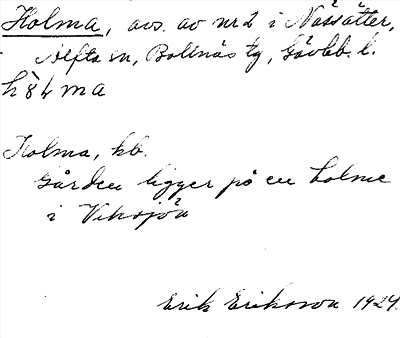 Holma, avs. av nr 2 i Nässätter,
Alfta sn, Bollnäs tg, Gävleb. l.
hòlma
Holma, kb.
Gården ligger på en holme
i Viksjön
Erik Eriksson 1924.